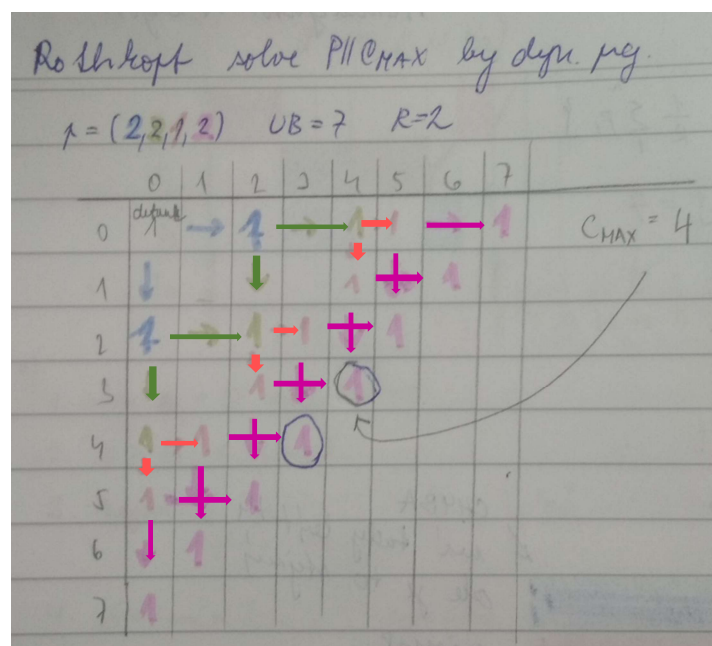 Rothkopf solve P||CMAX by dyn. pg.
p = (2,2,1,2) UB = 7 R=2
0 1 2 3 4 5 6 7
0 default 1 1 1 1 1 CMAX = 4
1 1 1
2 1 1 1 1
3 1 1
4 1 1 1
5 1 1
6 1
7 1